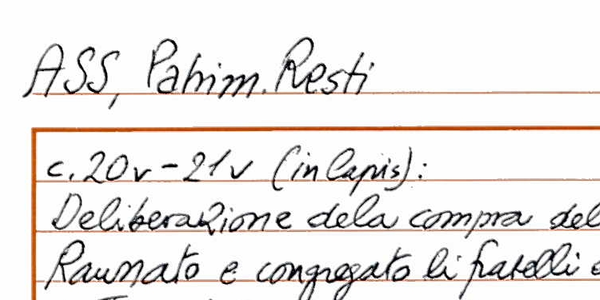 ASS, Patrim. Resti
c. 20v - 21v (in lapis):
Deliberazione dela compra del
Raunato e congregato li fratelli e